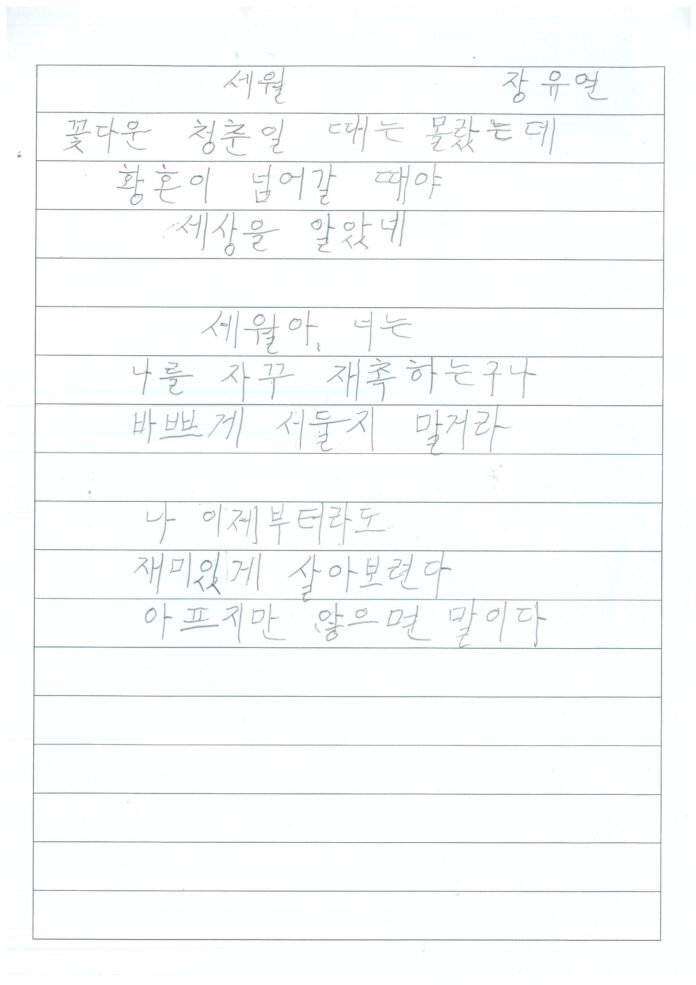 세월 장유연
꽃다운 청춘일 때는 몰랐는데
황혼이 넘어갈 때야
세상을 알았네
세월아, 너는
나를 자꾸 재촉하는구나
바쁘게 서둘지 말거라
나 이제부터라도
재미있게 살아보련다
아프지만 않으면 말이다